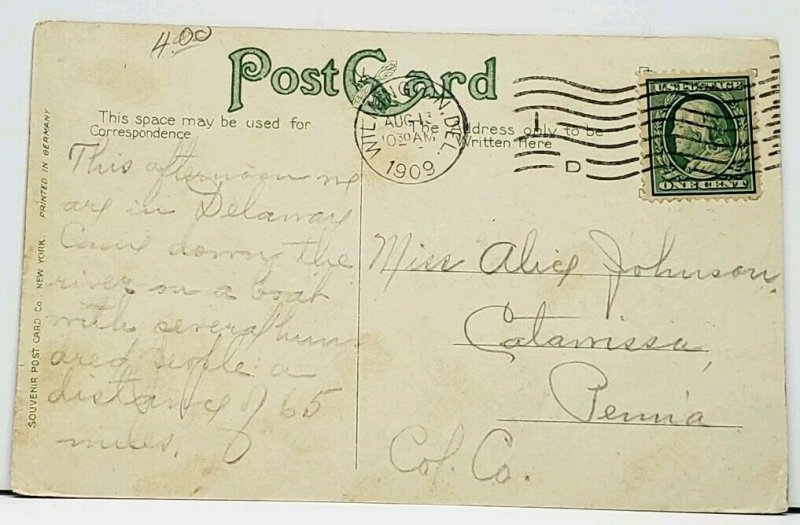 4.00
Post Card
This space may be used for
Correspondence
The Address only to be
Written here
WILMINGTON, DEL.
AUG 13
1030 AM
1909
D
U.S. POSTAGE
ONE CENT
SOUVENIR POST CARD Co. NEW YORK. PRINTED IN GERMANY
This afternoon we
are in Delaware
Came down the
river on a boat
with several hun-
dred people a
distance of 65
miles.
Miss Alice Johnson,
Catawissa,
Penn'a
Col. Co.